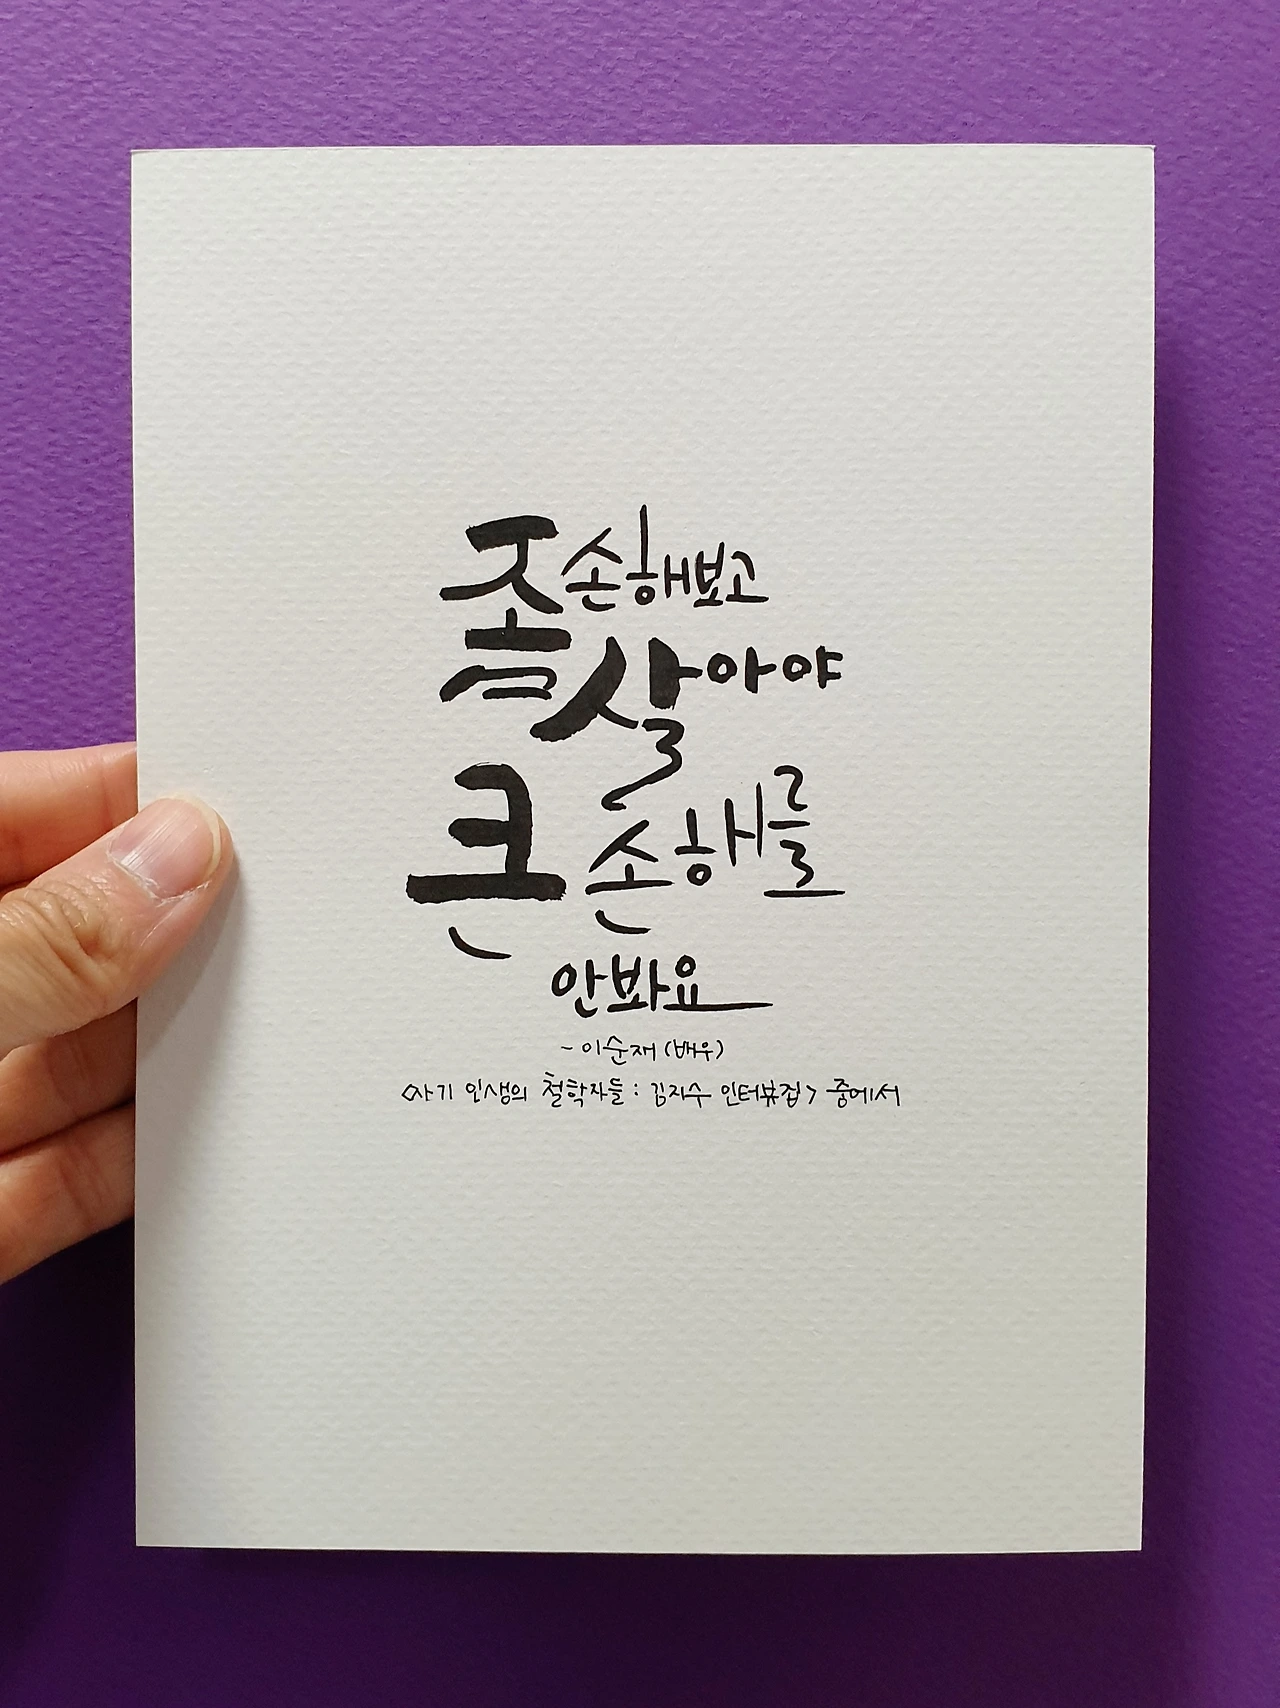 좀 손해보고
살아야
큰 손해를
안봐요
- 이순재 (배우)
<자기 인생의 철학자들 : 김지수 인터뷰집> 중에서